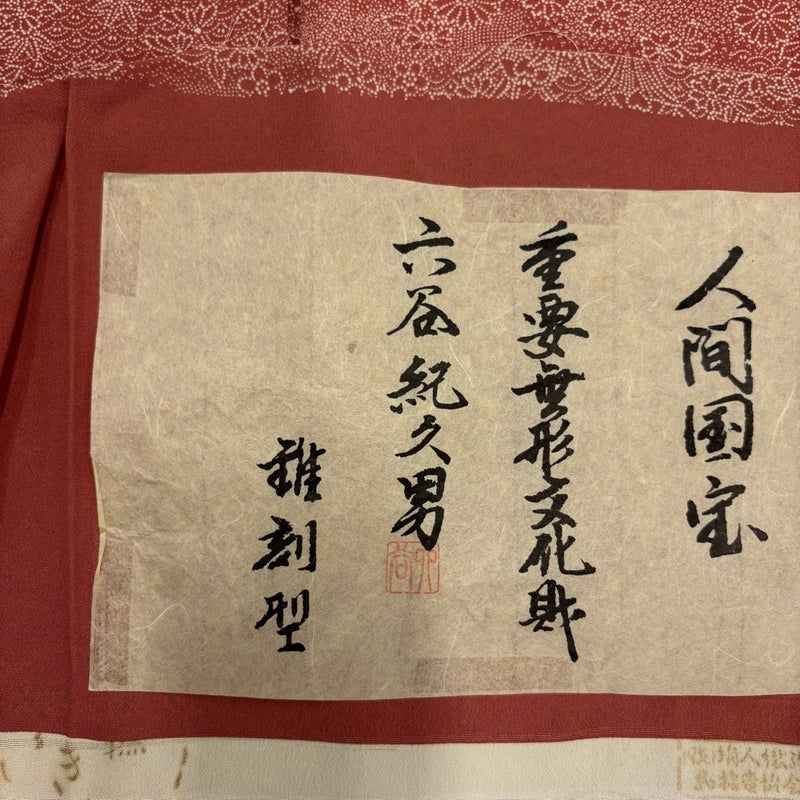 人間国宝
重要無形文化財
六谷紀久男
六谷
錐刻型